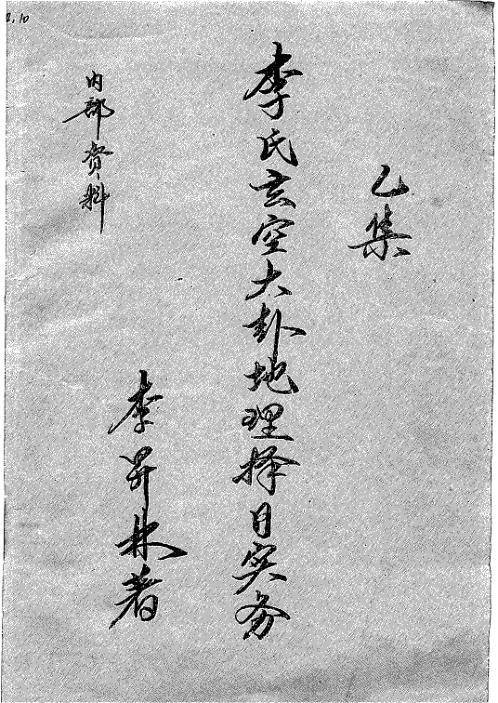 乙集
李氏玄空大卦地理择日实务
李昇林著
内部资料